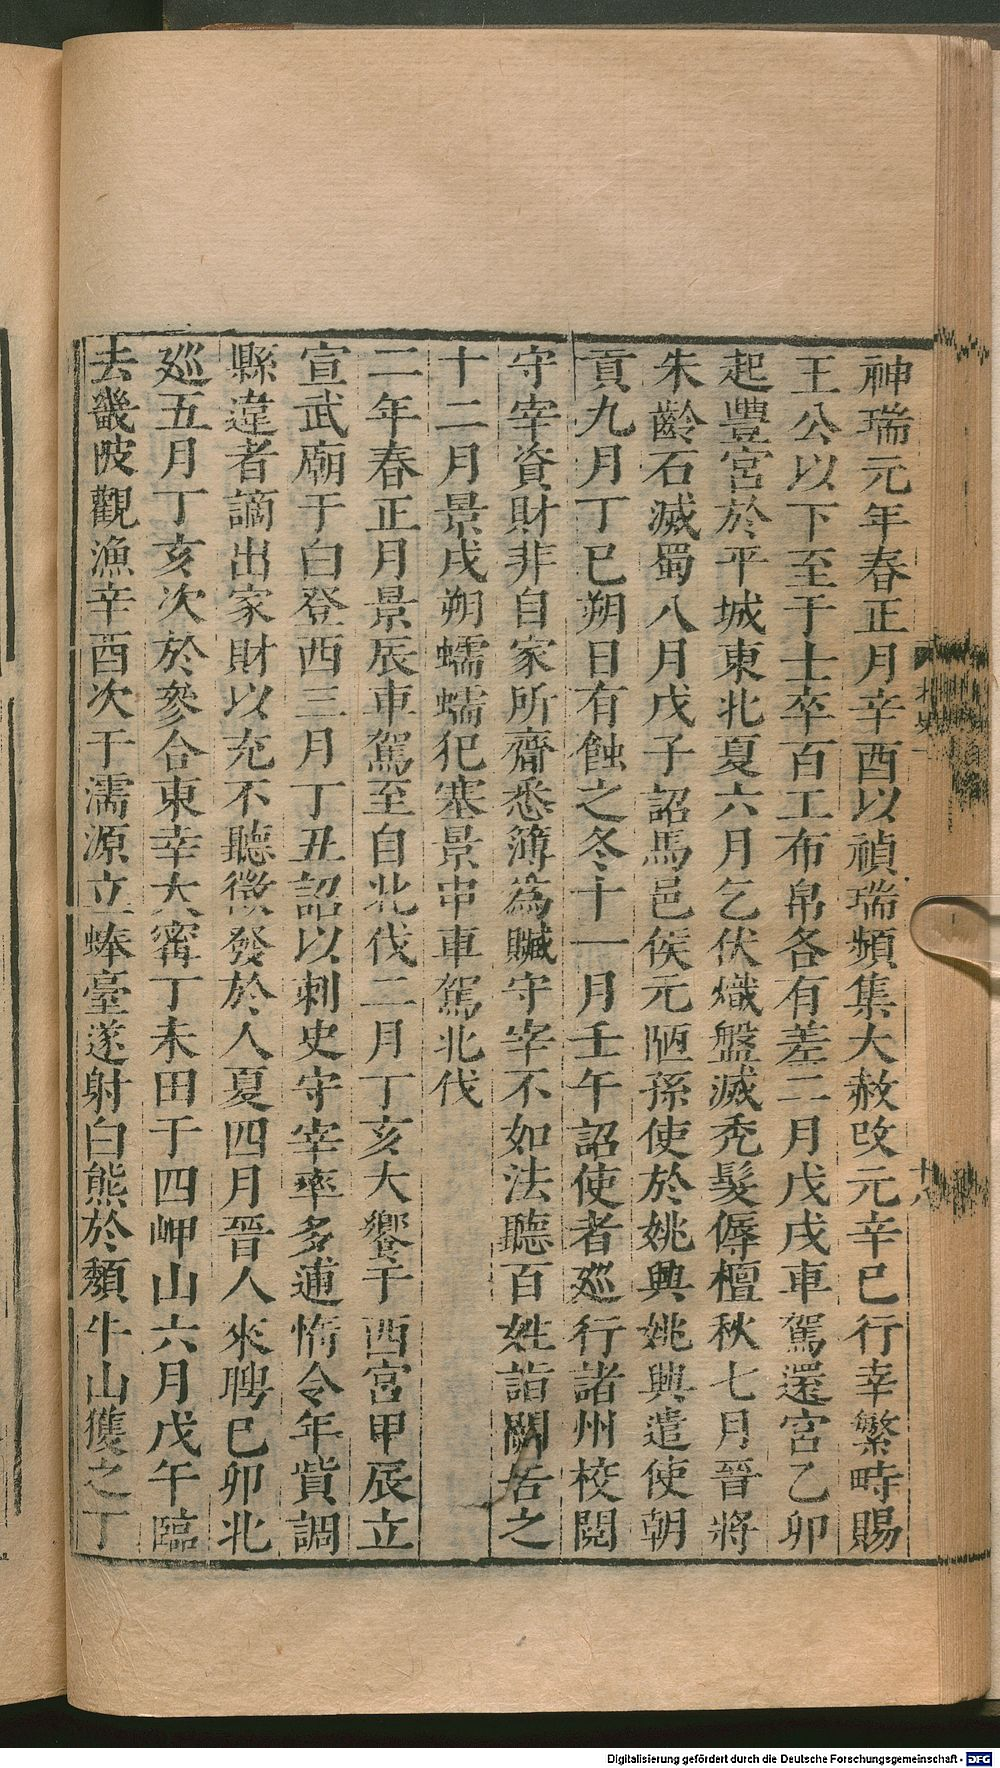 神瑞元年春正月辛酉以禎瑞頻集大赦改元辛巳行幸繁畤賜
王公以下至于士卒百工布帛各有差二月戊戌車駕還宮乙卯
起豐宮於平城東北夏六月乞伏熾盤滅禿髮傉檀秋七月晉將
朱齡石滅蜀八月戊子詔馬邑侯元陋孫使於姚興姚興遣使朝
貢九月丁巳朔日有蝕之冬十一月壬午詔使者巡行諸州校閱
守宰資財非自家所齎悉簿為贓守宰不如法聽百姓詣闕告之
十二月景戌朔蠕蠕犯塞景申車駕北伐
二年春正月景辰車駕至自北伐二月丁亥大饗于西宮甲辰立
宣武廟于白登西三月丁丑詔以刺史守宰率多逋惰令年貲調
縣違者謫出家財以充不聽徵發於人夏四月晉人來聘已卯北
巡五月丁亥次於參合東幸大甯丁未田于四岬山六月戊午臨
去畿陂觀漁辛酉次于濡源立蜯臺遂射白熊於頹牛山獲之丁
北史一
十六
Digitalisierung gefördert durch die Deutsche Forschungsgemeinschaft - DFG